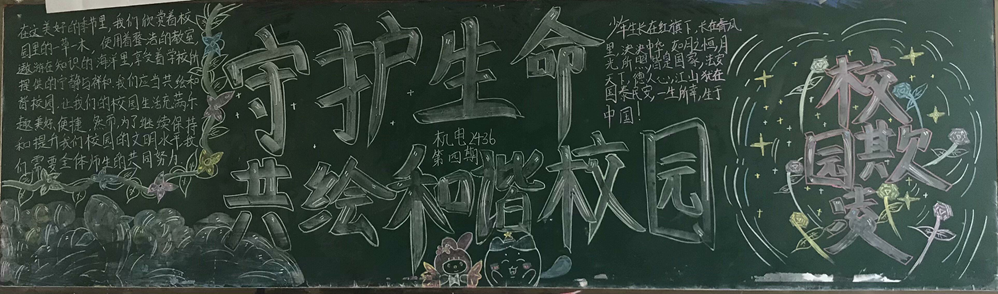 在这美好的季节里,我们欣赏着校
园里的一草一木,使用着整洁的教室,
遨游在知识的海洋里,享受着学校所
提供的宁静与祥和我们应当共绘和
谐校园,让我们的校园生活充满乐
趣美好便捷,然而,为了继续保持
和提升我们校园的文明水平,我
们需要全体师生的共同努力
守护生命
共绘和谐校园
机电2436
第四期
少年生长在红旗下,长在春风
里,泱泱中华,如日之恒,月
光所照皆是国家,法安
天下,德人心,江山秋在
国泰民安,一生所幸,生于
中国!
校
园欺
凌